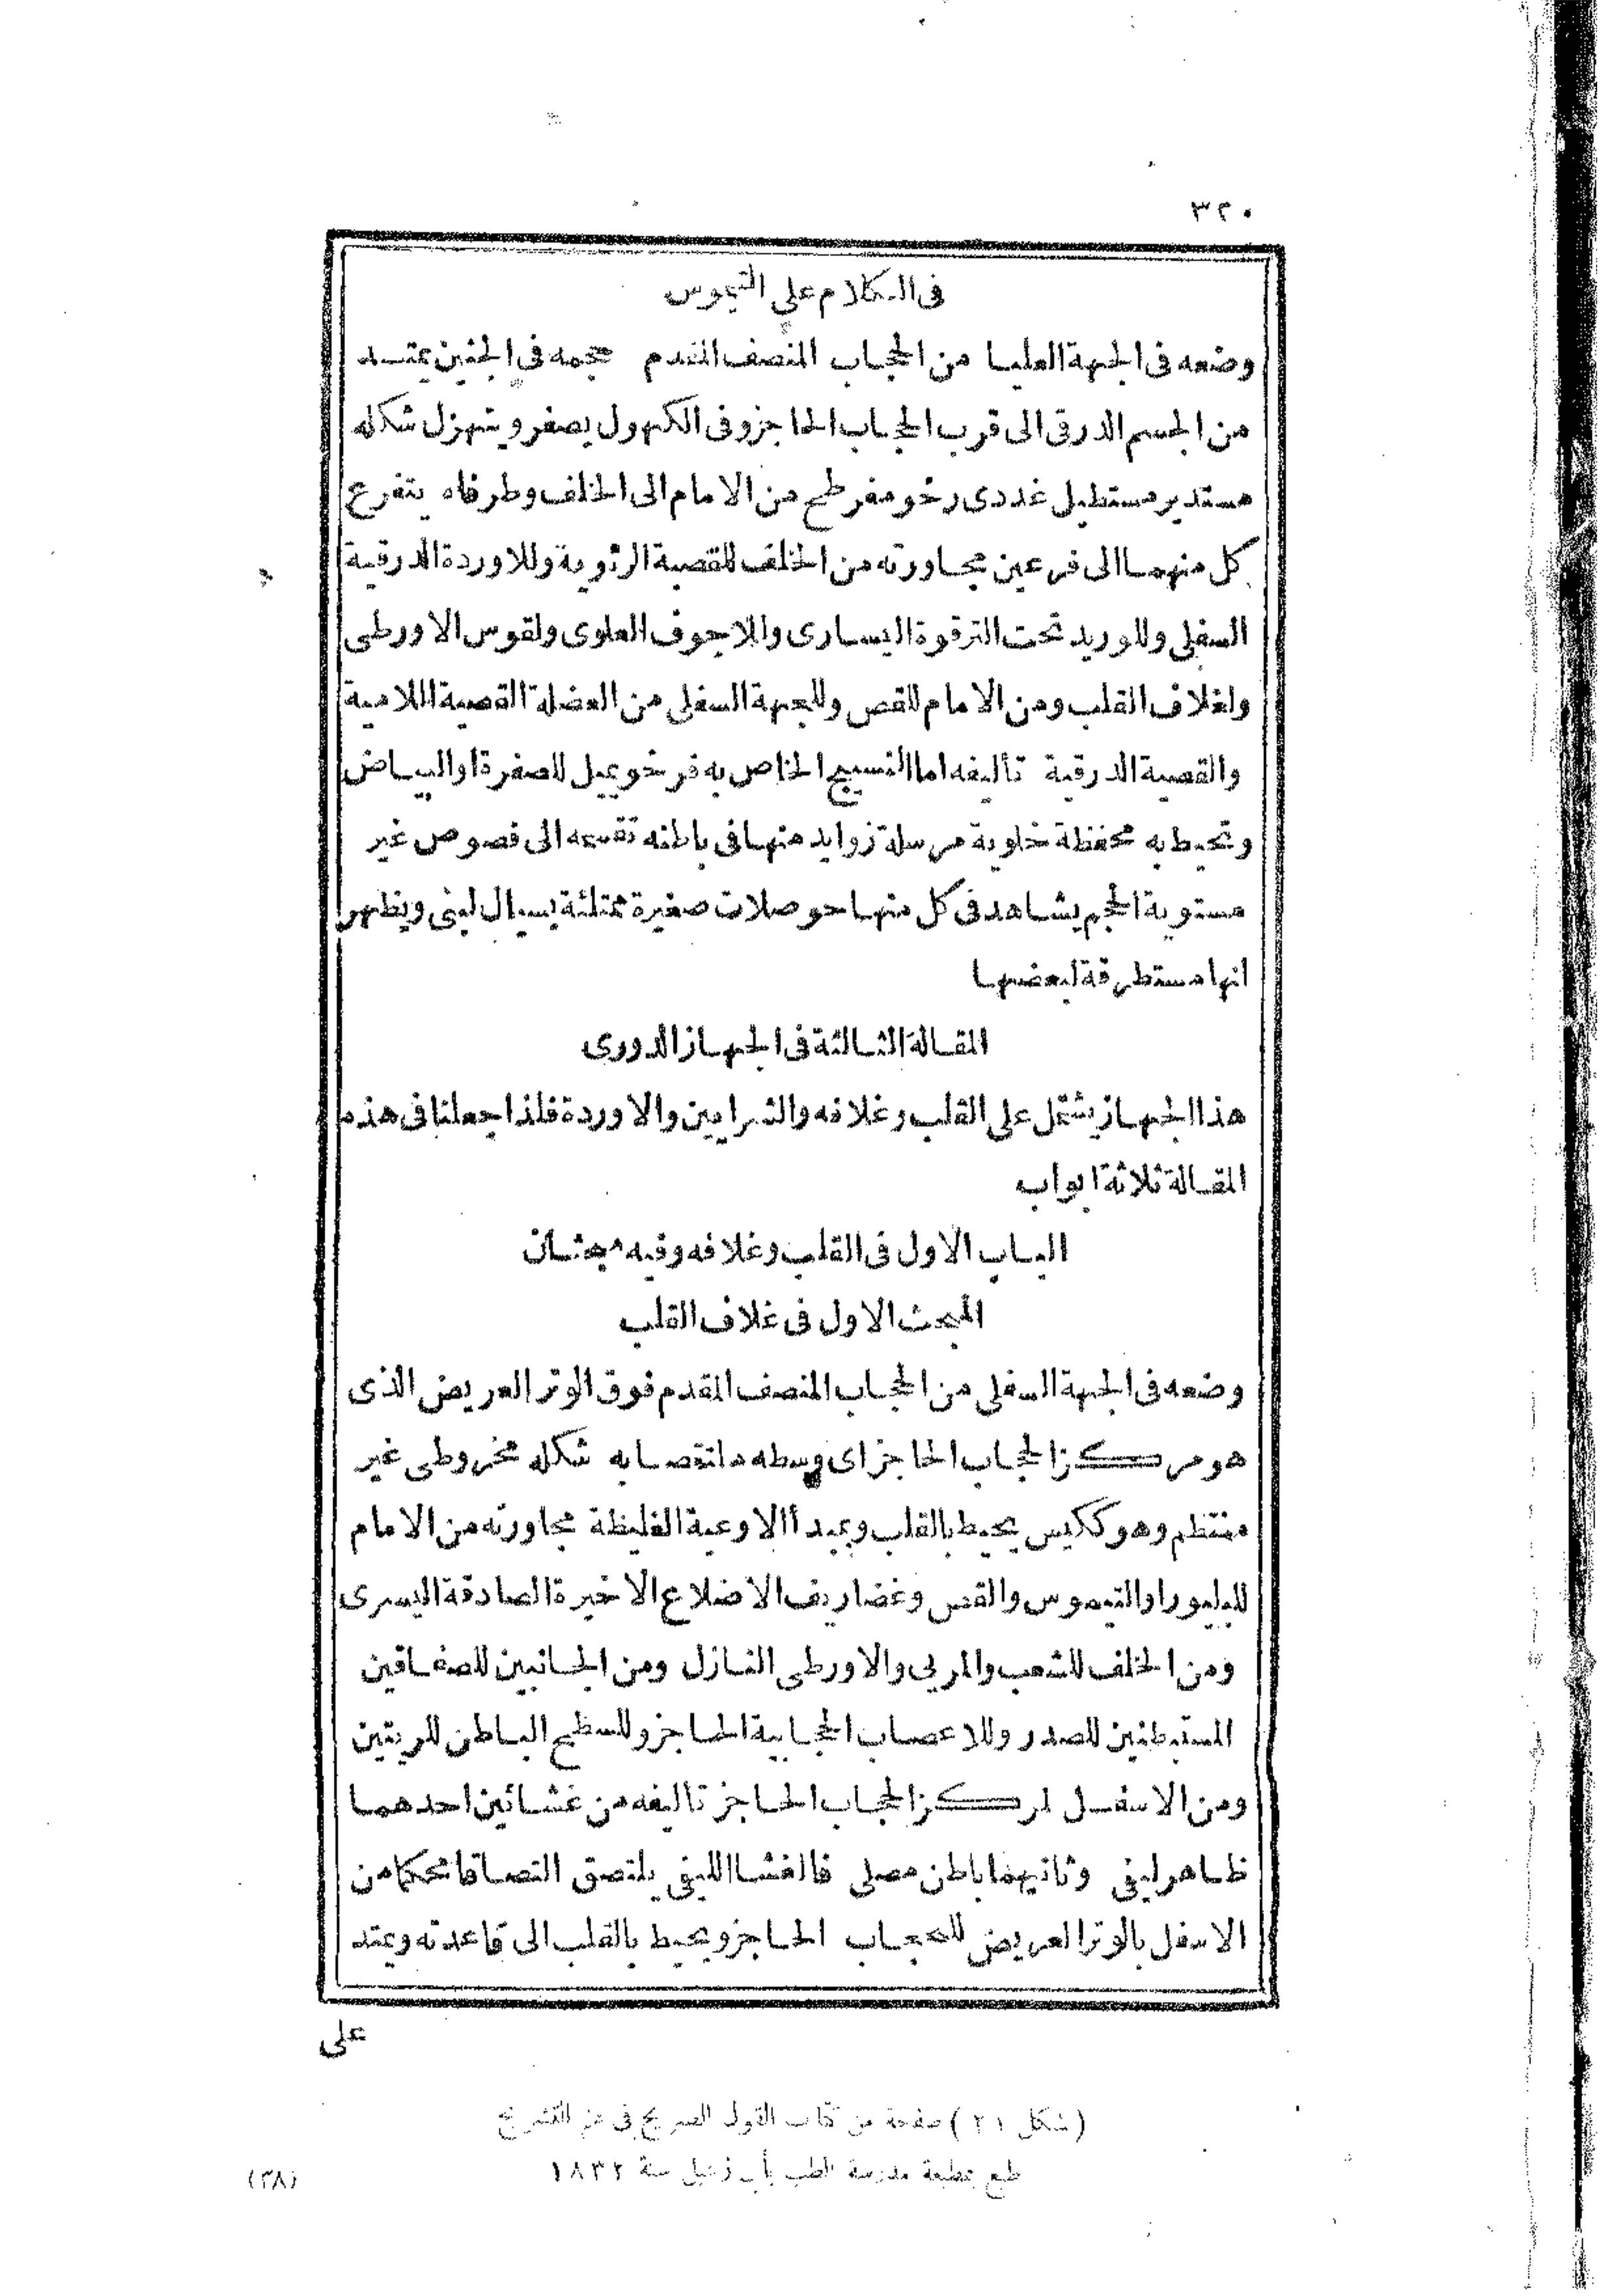 ٣٢٠
فى الكلام على التيموس
وضعه فى الجهة العليا من الحجاب المنصف المقدم حجمه فى الجنين يمتد
من الجسم الدرقى الى قرب الحجاب الحاجز وفى الكهول يصغر وينهزل شكله
مستدير مستطيل غددى رخو مفرطح من الامام الى الخلف وطرفاه يتفرع
كل منهما الى فرعين مجاورته من الخلف للقصبة الرئوية وللاوردة الدرقية
السفلى وللوريد تحت الترقوة اليسارى وللاجوف العلوى ولقوس الاورطى
ولغلاف القلب ومن الامام للقص وللجهة السفلى من العضلة القصية اللامية
والقصية الدرقية تأليفه اما النسيج الخاص به فرخو يميل للصفرة او البياض
وتحيط به محفظة خلوية مرسلة زوايد منها فى باطنه تقسمه الى فصوص غير
مستوية الحجم يشاهد فى كل منها حوصلات صغيرة ممتلئة بسيال لبنى ويظهر
انها مستطرقة لبعضها
المقالة الثالثة فى الجهاز الدورى
هذا الجهاز يشتمل على القلب وغلافه والشرايين والاوردة فلذا جعلنا فى هذه
المقالة ثلاثة ابواب
الباب الاول فى القلب وغلافه وفيه مبحثان
المبحث الاول فى غلاف القلب
وضعه فى الجهة السفلى من الحجاب المنصف المقدم فوق الوتر العريض الذى
هو مركز الحجاب الحاجز اى وسطه ملتصقا به شكله مخروطى غير
منتظم وهو ككيس يحيط بالقلب وبمبدأ الاوعية الغليظة مجاورته من الامام
للبليورا والتيموس والقص وغضاريف الاضلاع الاخيرة الصادقة اليسرى
ومن الخلف للشعب والمرىء والاورطى النازل ومن الجانبين للصفاقين
المستبطنين للصدر وللاعصاب الحجابية الحاجز وللسطح الباطن للريتين
ومن الاسفل لمركز الحجاب الحاجز تاليفه من غشائين احدهما
ظاهر ليفى وثانيهما باطن مصلى فالغشا الليفى يلتصق التصاقا محكما من
الاسفل بالوتر العريض للحجاب الحاجز ويحيط بالقلب الى قاعدته ويمتد
على
(شكل ٢١) صفحة من كتاب القول الصريح فى علم التشريح
طبع بمطبعة مدرسة الطب بأبى زعبل سنة ١٨٣٢
(٣٨)